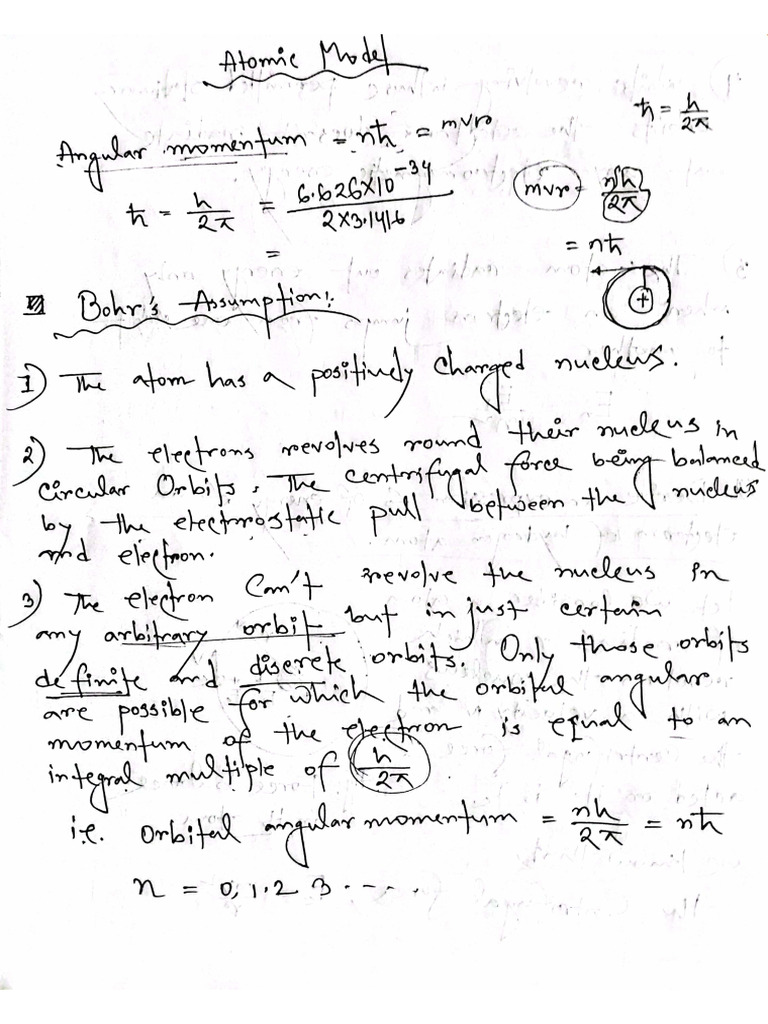 Atomic Model
Angular momentum = nħ = mvr
ħ = h/2π
ħ = h/2π = 6.626×10⁻³⁴/2×3.1416
=
mvr = nh/2π
= nħ
+
Bohr's Assumption:
1) The atom has a positively charged nucleus.
2) The electrons revolves round their nucleus in
circular Orbits. The centrifugal force being balanced
by the electrostatic pull between the nucleus
and electron.
3) The electron Can't revolve the nucleus in
any arbitrary orbit but in just certain
definite and discrete orbits. Only those orbits
are possible for which the orbital angular
momentum of the electron is equal to an
integral multiple of h/2π.
i.e. orbital angular momentum = nh/2π = nħ
n = 0, 1. 2 3 ....